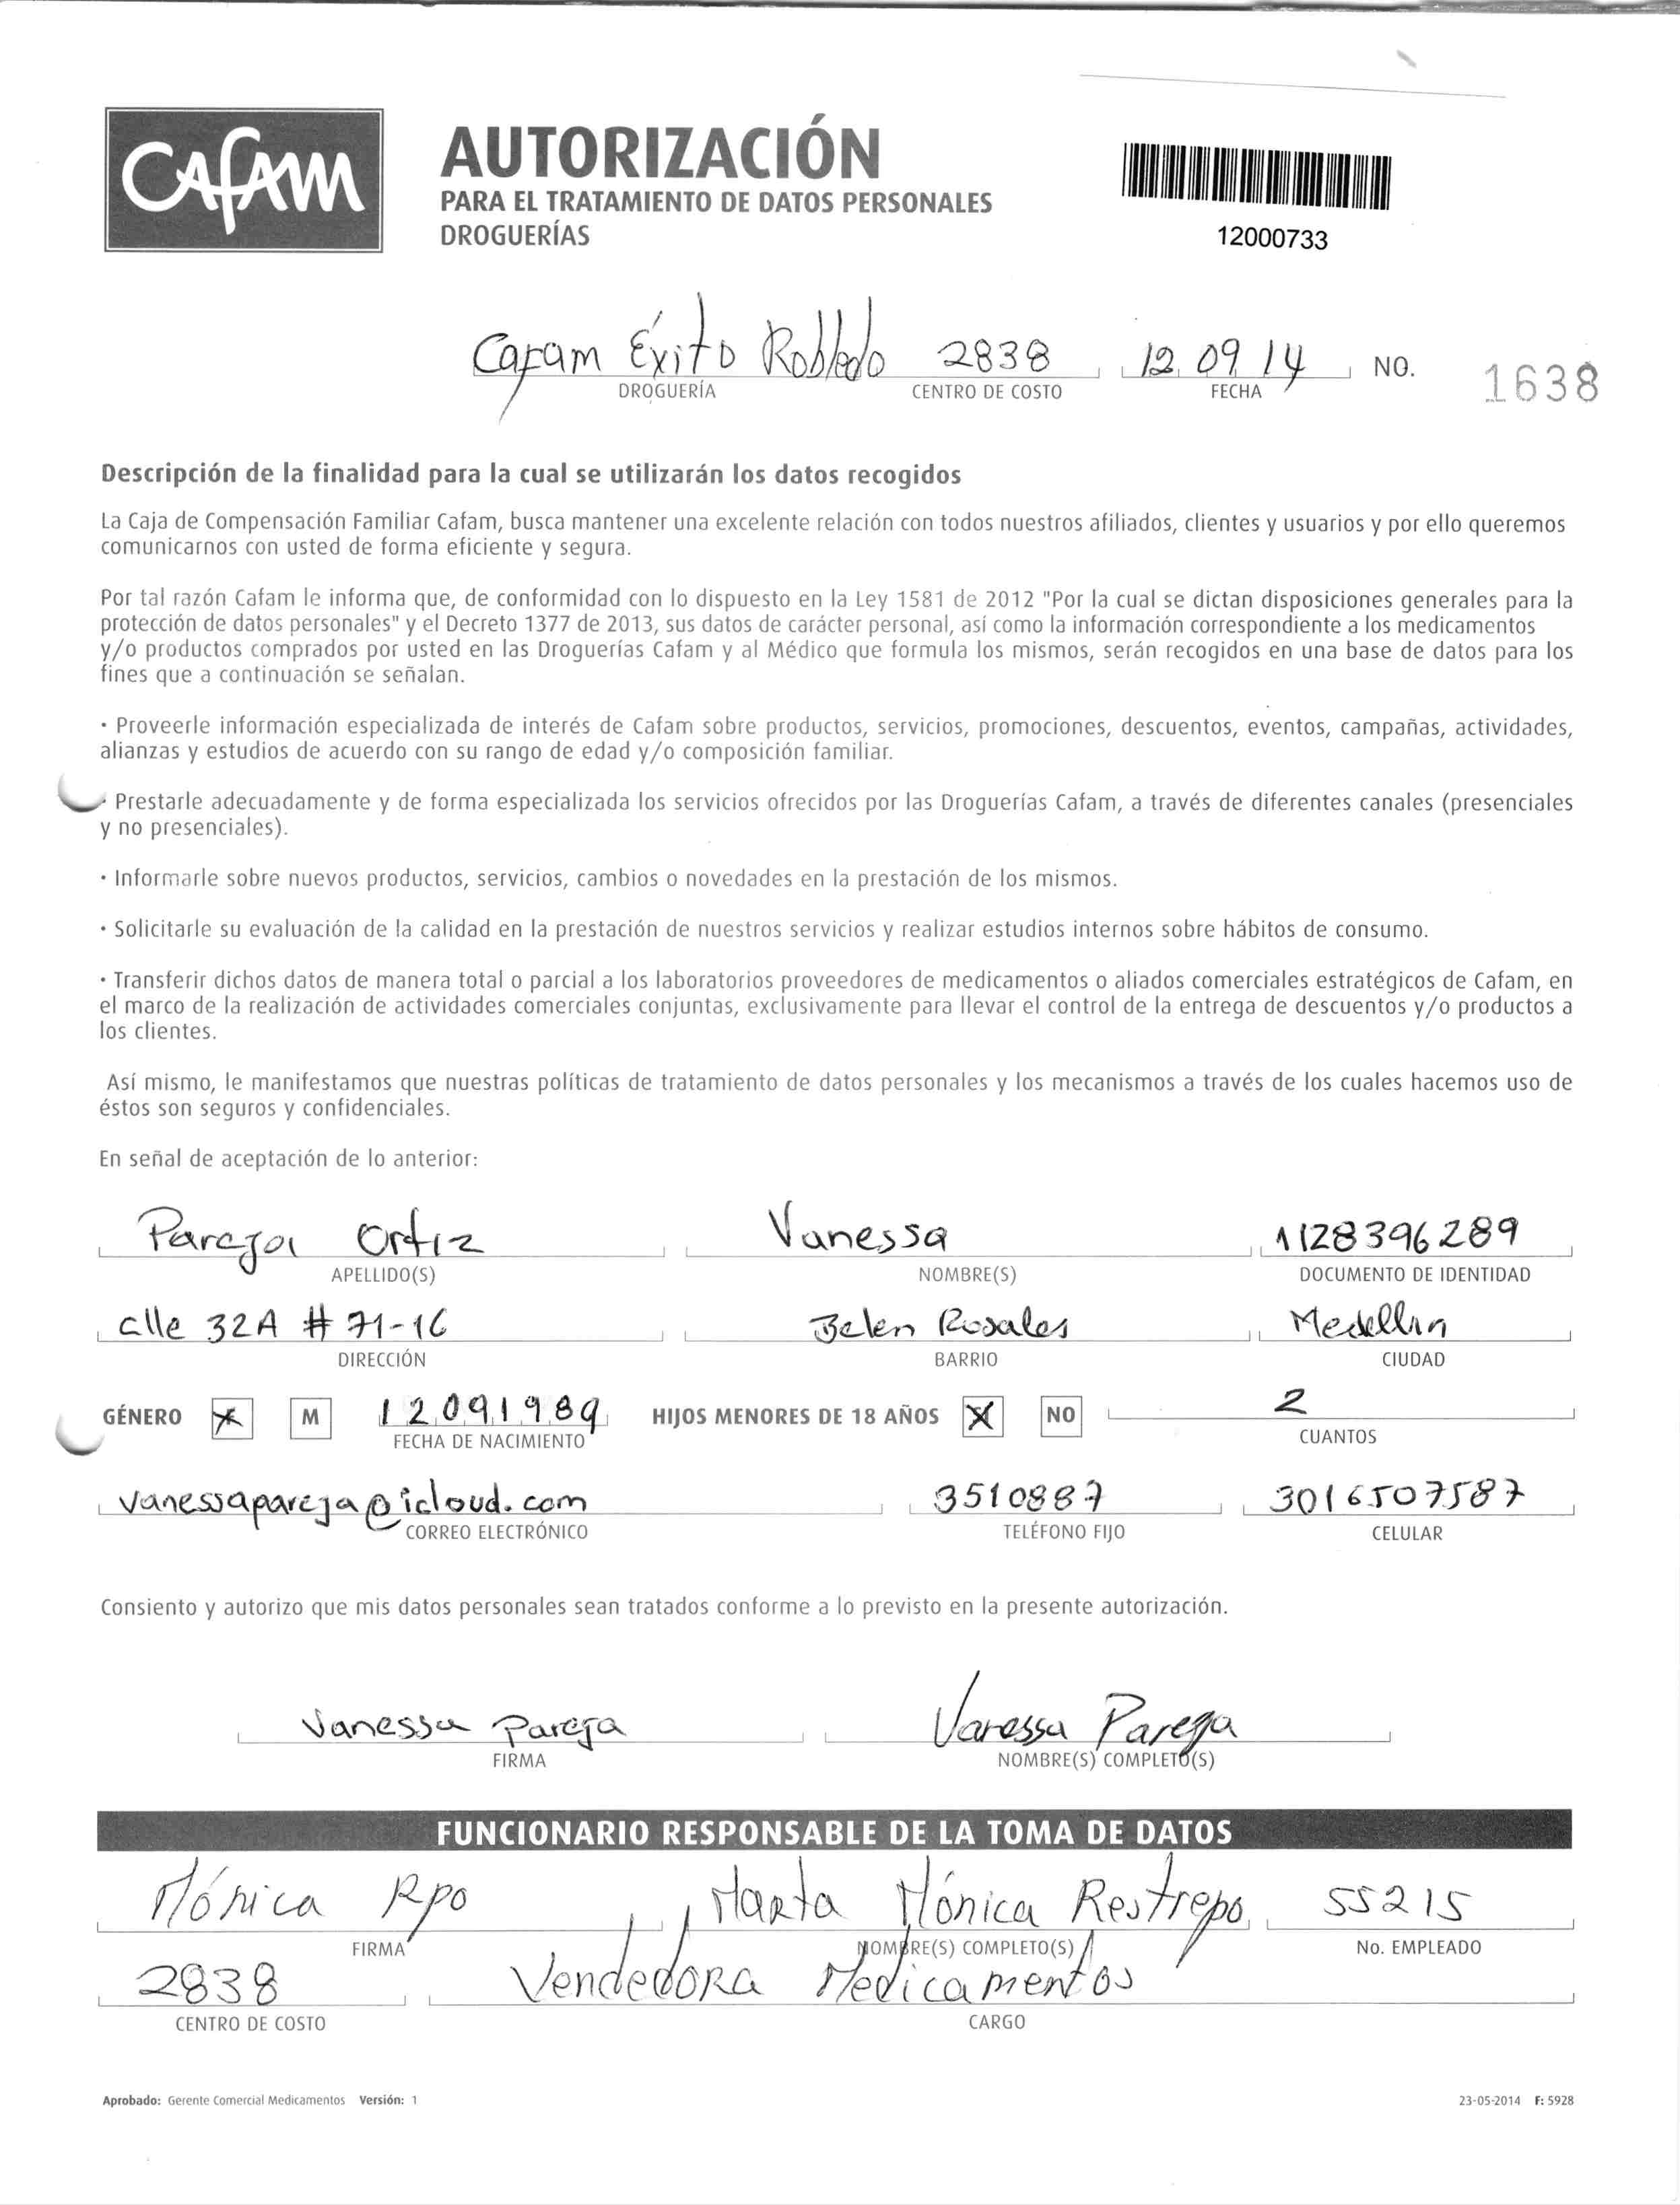 Cafam
AUTORIZACIÓN
PARA EL TRATAMIENTO DE DATOS PERSONALES
DROGUERÍAS
12000733
Cafam Éxito Robledo 2838 12 09 14 NO. 1638
DROGUERÍA CENTRO DE COSTO FECHA
Descripción de la finalidad para la cual se utilizarán los datos recogidos
La Caja de Compensación Familiar Cafam, busca mantener una excelente relación con todos nuestros afiliados, clientes y usuarios y por ello queremos
comunicarnos con usted de forma eficiente y segura.
Por tal razón Cafam le informa que, de conformidad con lo dispuesto en la Ley 1581 de 2012 "Por la cual se dictan disposiciones generales para la
protección de datos personales" y el Decreto 1377 de 2013, sus datos de carácter personal, así como la información correspondiente a los medicamentos
y/o productos comprados por usted en las Droguerías Cafam y al Médico que formula los mismos, serán recogidos en una base de datos para los
fines que a continuación se señalan.
· Proveerle información especializada de interés de Cafam sobre productos, servicios, promociones, descuentos, eventos, campañas, actividades,
alianzas y estudios de acuerdo con su rango de edad y/o composición familiar.
· Prestarle adecuadamente y de forma especializada los servicios ofrecidos por las Droguerías Cafam, a través de diferentes canales (presenciales
y no presenciales).
· Informarle sobre nuevos productos, servicios, cambios o novedades en la prestación de los mismos.
· Solicitarle su evaluación de la calidad en la prestación de nuestros servicios y realizar estudios internos sobre hábitos de consumo.
· Transferir dichos datos de manera total o parcial a los laboratorios proveedores de medicamentos o aliados comerciales estratégicos de Cafam, en
el marco de la realización de actividades comerciales conjuntas, exclusivamente para llevar el control de la entrega de descuentos y/o productos a
los clientes.
Así mismo, le manifestamos que nuestras políticas de tratamiento de datos personales y los mecanismos a través de los cuales hacemos uso de
éstos son seguros y confidenciales.
En señal de aceptación de lo anterior:
Pareja Ortiz Vanessa 1128396289
APELLIDO(S) NOMBRE(S) DOCUMENTO DE IDENTIDAD
clle 32A # 71-16 Belen Rosales Medellin
DIRECCIÓN BARRIO CIUDAD
GÉNERO X M 12091989 HIJOS MENORES DE 18 AÑOS X NO 2
FECHA DE NACIMIENTO CUANTOS
vanessapareja@icloud.com 3510887 3016507587
CORREO ELECTRÓNICO TELÉFONO FIJO CELULAR
Consiento y autorizo que mis datos personales sean tratados conforme a lo previsto en la presente autorización.
Vanessa Pareja Vanessa Pareja
FIRMA NOMBRE(S) COMPLETO(S)
FUNCIONARIO RESPONSABLE DE LA TOMA DE DATOS
Mónica Rpo Marta Mónica Restrepo 55215
FIRMA NOMBRE(S) COMPLETO(S) No. EMPLEADO
2838 Vendedora Medicamentos
CENTRO DE COSTO CARGO
Aprobado: Gerente Comercial Medicamentos Versión: 1 23-05-2014 F: 5928